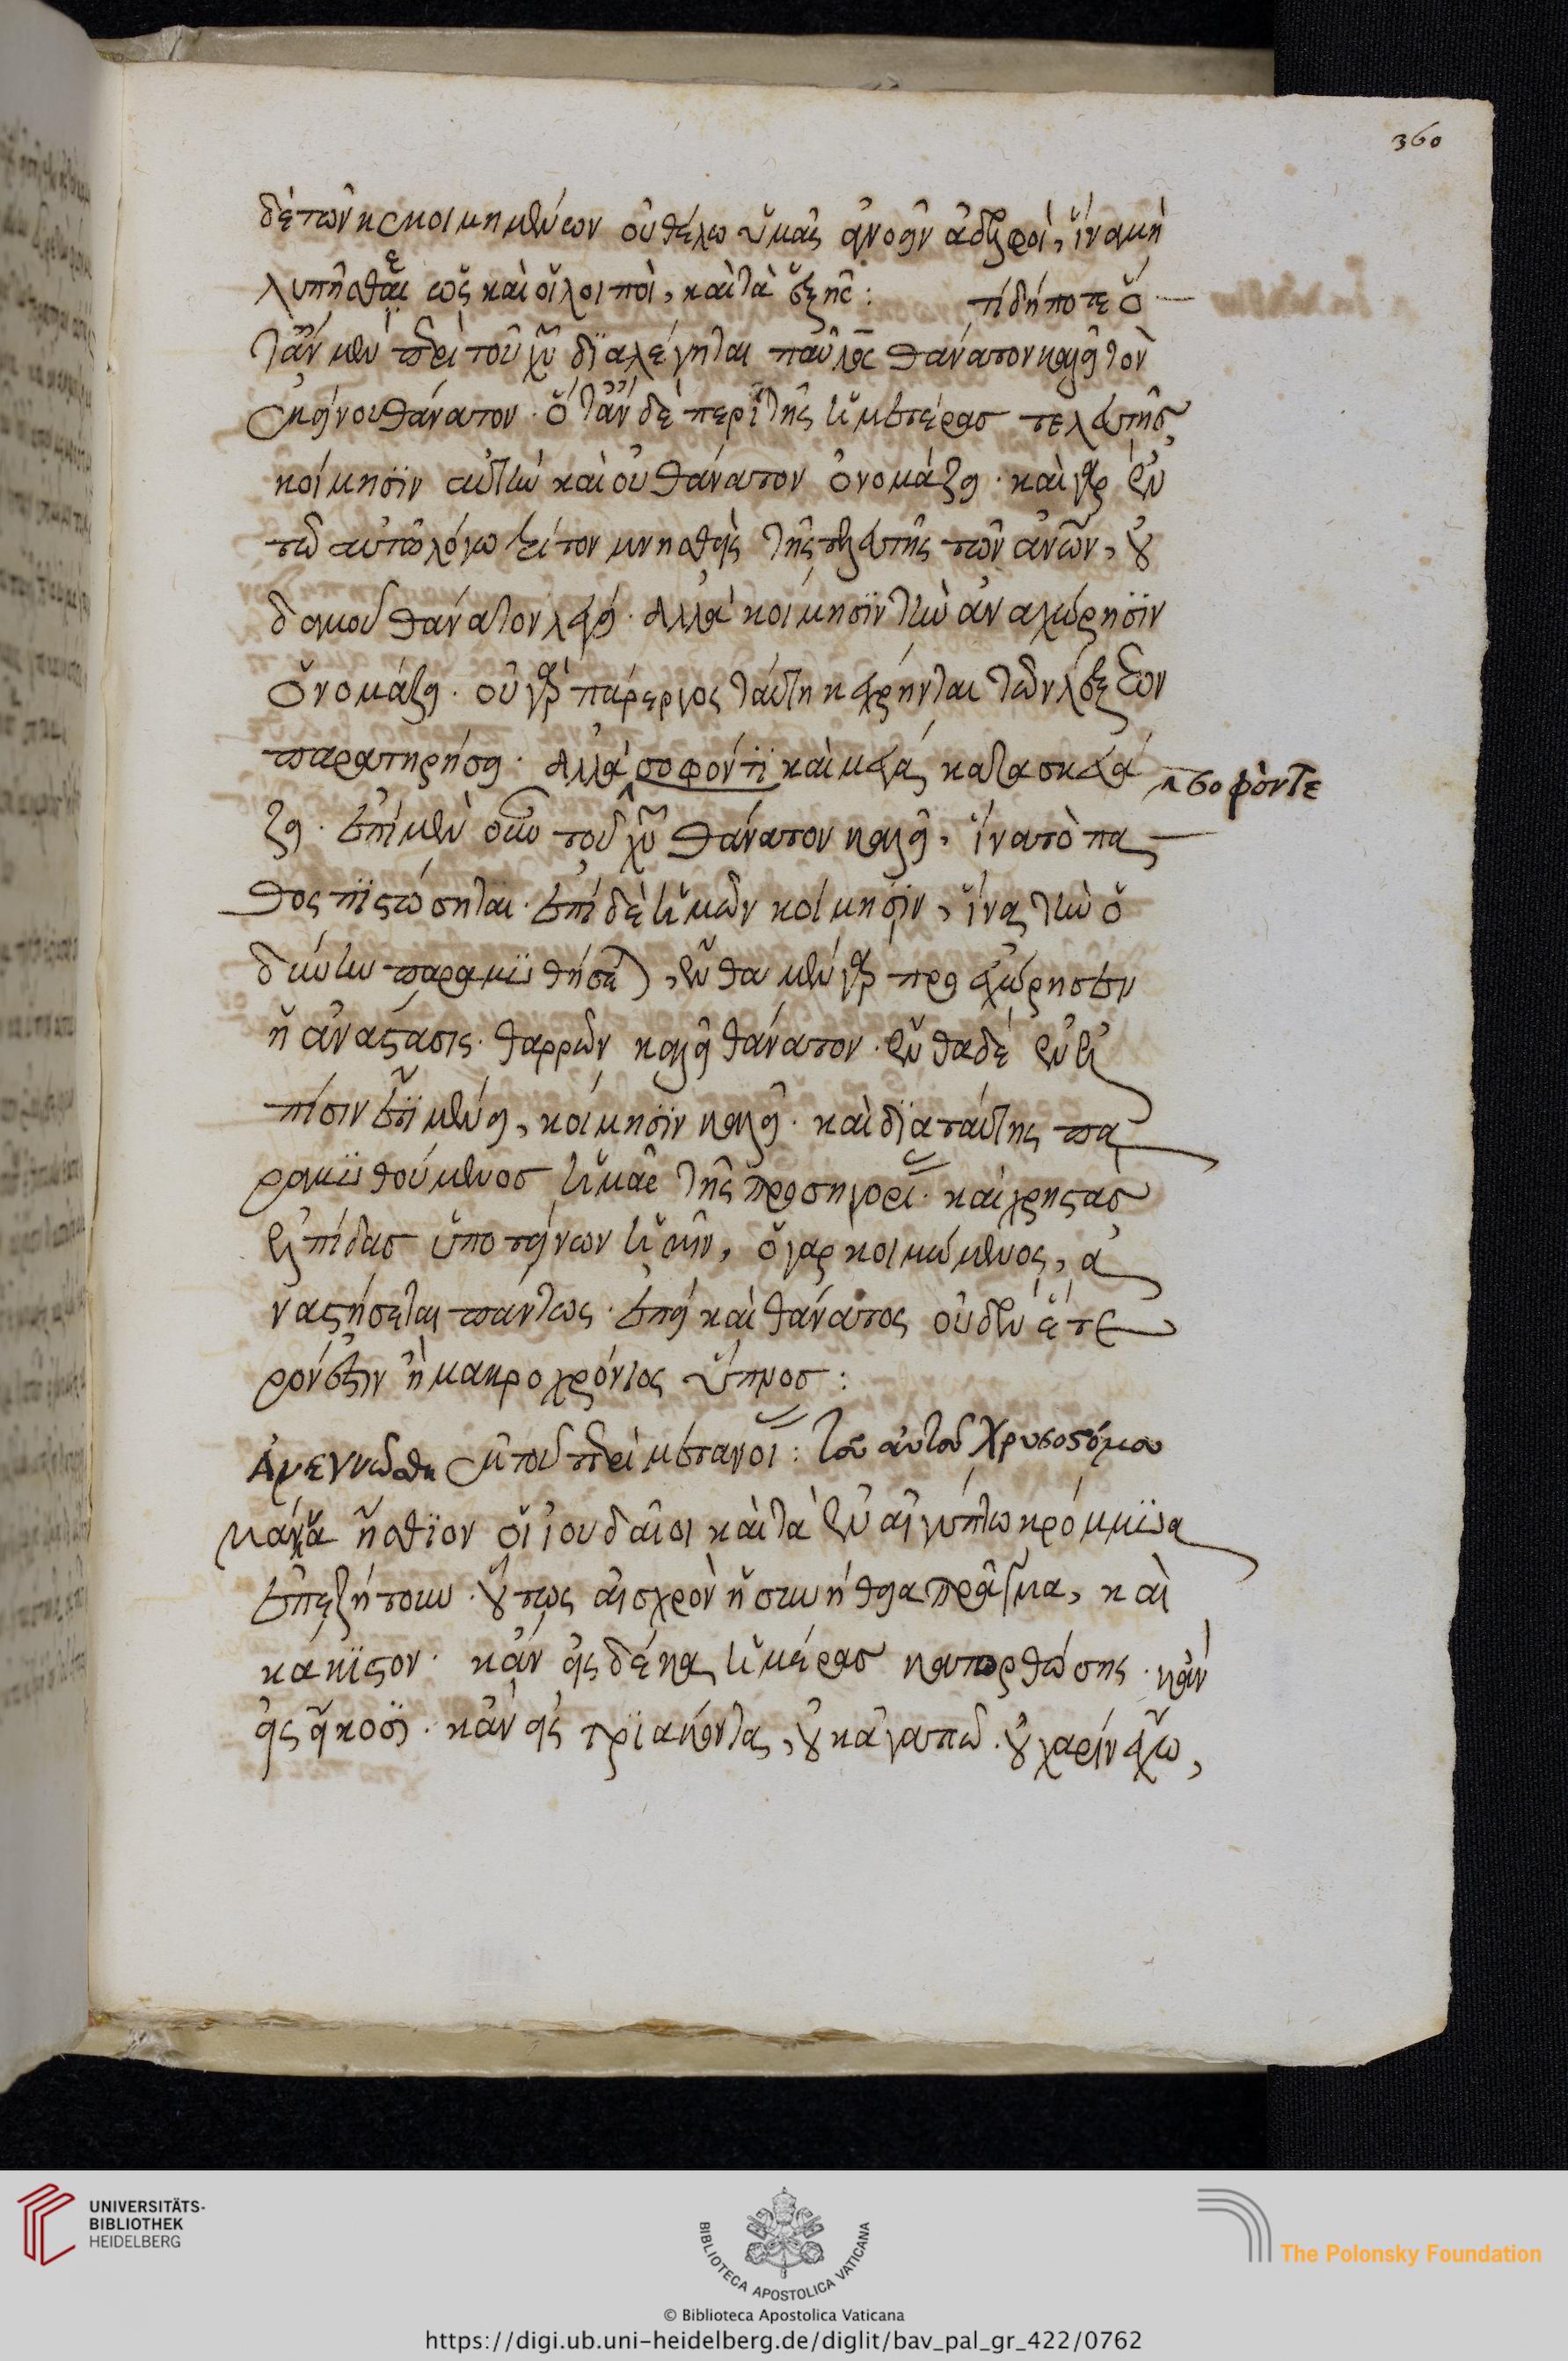 360
δὲ τῶν κεκοιμημένων οὐ θέλω ὑμᾶς ἀγνοεῖν ἀδελφοὶ, ἵνα μὴ
λυπῆσθαι ὡς καὶ οἱ λοιποὶ, καὶ τὰ ἑξῆς : τί δήποτε ὅ
τἂν μὲν περὶ τοῦ χυ διαλέγηται παῦλος θάνατον καλεῖ τὸν
ἐκείνου θάνατον · ὅτἂν δὲ περὶ τῆς ἡμετέρας τελευτῆς
κοίμησϊν αὐτὴν καὶ οὐ θάνατον ὀνομάζει · καὶ γὰρ ἐν
τῶ αὐτῶ λόγω ἐπὶ τὸν μνησθεὶς τῆς τελευτῆς τῶν ἀνων, οὐ
δαμοῦ θάνατον λέγει · ἀλλὰ κοίμησϊν τὴν ἀναχώρησϊν
ὀνομάζει · οὐ γὰρ πάρεργος ταύτη κέχρηνται τῶν λέξεων
παρατηρήσει · ἀλλὰ σοφόντϊ καὶ μέγα κατασκευά
σοφόντε
ζει · ἐπὶ μὲν οὖν τοῦ χυ θάνατον καλεῖ, ἵνα τὸ πα
θος πϊστώσηται · ἐπὶ δὲ ἡμῶν κοίμησϊν, ἵνα τὴν ὀ
δύνην παραμϋθήσηται, ἔνθα μὲν γὰρ προεχώρησεν
ἡ ἀνάστασις · θαρρῶν καλεῖ θάνατον · ἔνθα δὲ ἐν ἐλ
πίσιν ἔτϊ μένει, κοίμησϊν καλεῖ · καὶ δϊα ταύτης πα
ραμϋθούμενος ἡμᾶς τῆς προσηγορί · καὶ χρηστὰς
ἐλπίδας ὑποτείνων ἡμῖν, ὁ γαρ κοιμώμενος, ἀ
ναστήσεται πάντως · ἐπεὶ καὶ θάνατος οὐδὲν ἕτε
ρόν ἐστιν ἢ μακροχρόνιος ὕπνος :
Ἀνεγνώσθη ἐκ τοῦ περὶ μετανοί : τοῦ αὐτοῦ Χρυσοστόμου
μάννα ἤσθϊον οἱ ἰουδαῖοι καὶ τὰ ἐν αἰγύπτω κρόμμϋα
ἐπεζήτουν · οὕτως αἰσχρὸν ἡ συνήθεια πρᾶγμα, καὶ
κάκϊστον · κἂν εἰς δέκα ἡμέρας κατορθώσης · κἂν
εἰς εἴκοσϊ · κἂν εἰς τρϊάκοντα, οὐκ ἀγαπῶ · οὐ χάριν ἔχω,
UNIVERSITÄTS-
BIBLIOTHEK
HEIDELBERG
BIBLIOTECA APOSTOLICA VATICANA
The Polonsky Foundation
© Biblioteca Apostolica Vaticana
https://digi.ub.uni-heidelberg.de/diglit/bav_pal_gr_422/0762